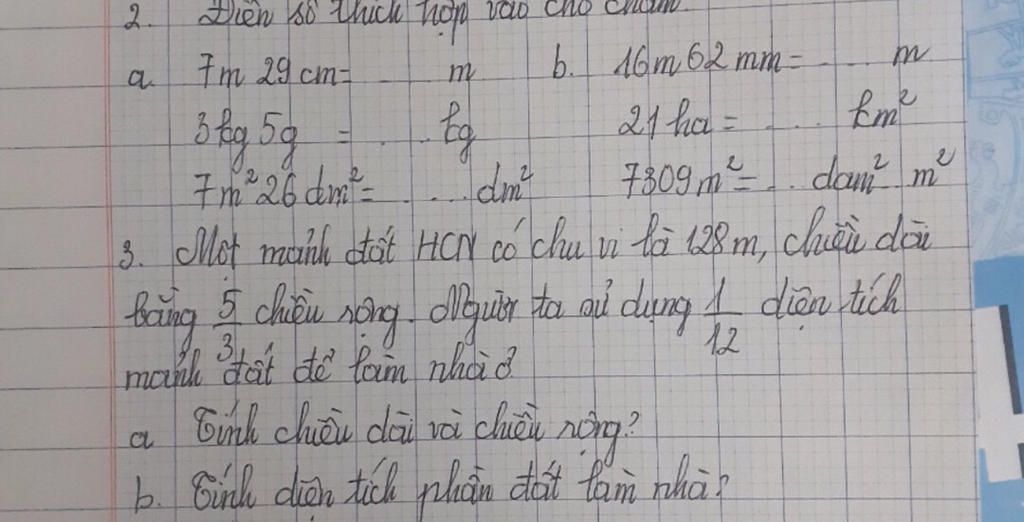 2. Điền số thích hợp vào chỗ chấm.
a 7m 29cm = ..... m b. 16m 62mm = ..... m
3kg 5g = ..... kg 21 ha = ..... km²
7m² 26dm² = ..... dm² 7309m² = ... dam² ... m²
3. Một mảnh đất HCN có chu vi là 128m, chiều dài
bằng 5/3 chiều rộng. Người ta sử dụng 1/12 diện tích
mảnh đất để làm nhà ở.
a Tính chiều dài và chiều rộng?
b. Tính diện tích phần đất làm nhà?